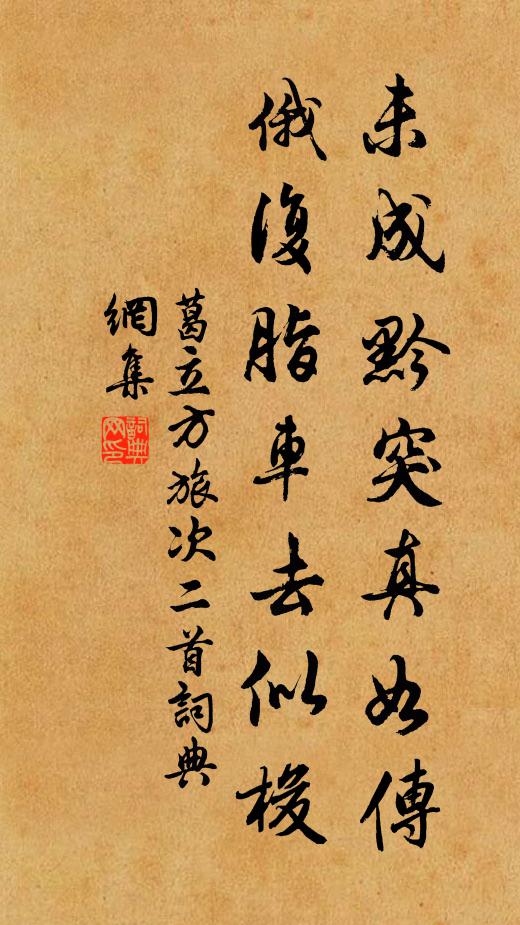 未成黔突真如傳
俄復脂車去似梭
葛立方旅次二首詞典
網集
詞典网印